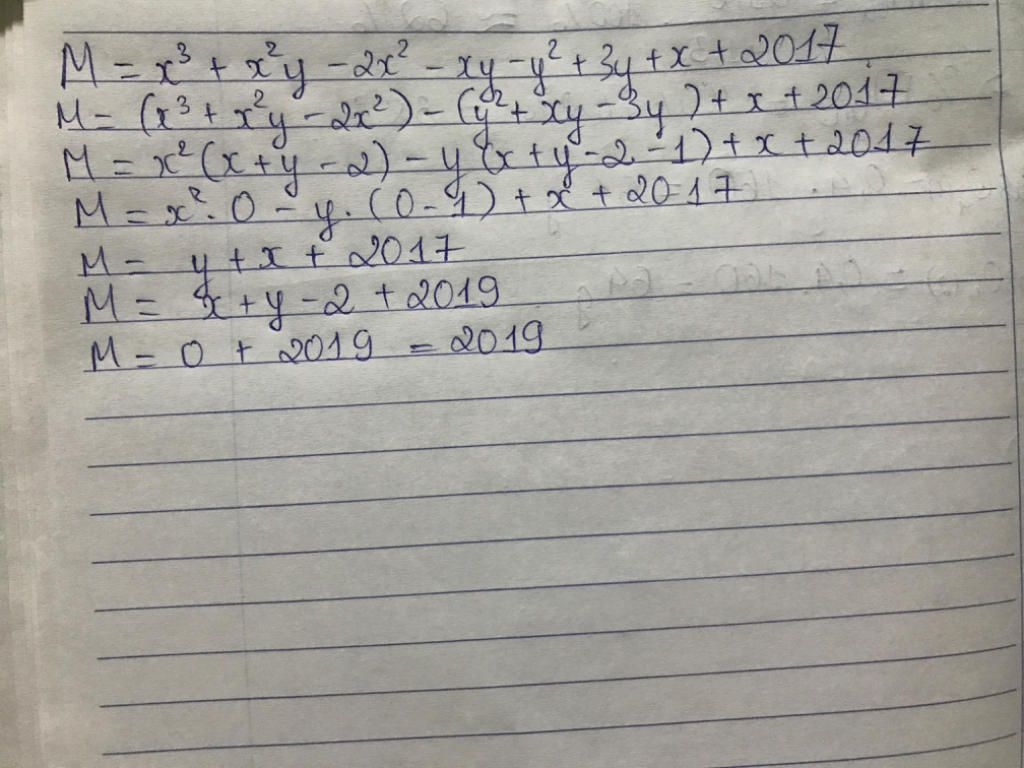 M = x³ + x²y - 2x² - xy - y² + 3y + x + 2017
M = (x³ + x²y - 2x²) - (y² + xy - 3y) + x + 2017
M = x²(x + y - 2) - y(x + y - 2 - 1) + x + 2017
M = x².0 - y.(0 - 1) + x + 2017
M = y + x + 2017
M = x + y - 2 + 2019
M = 0 + 2019 = 2019